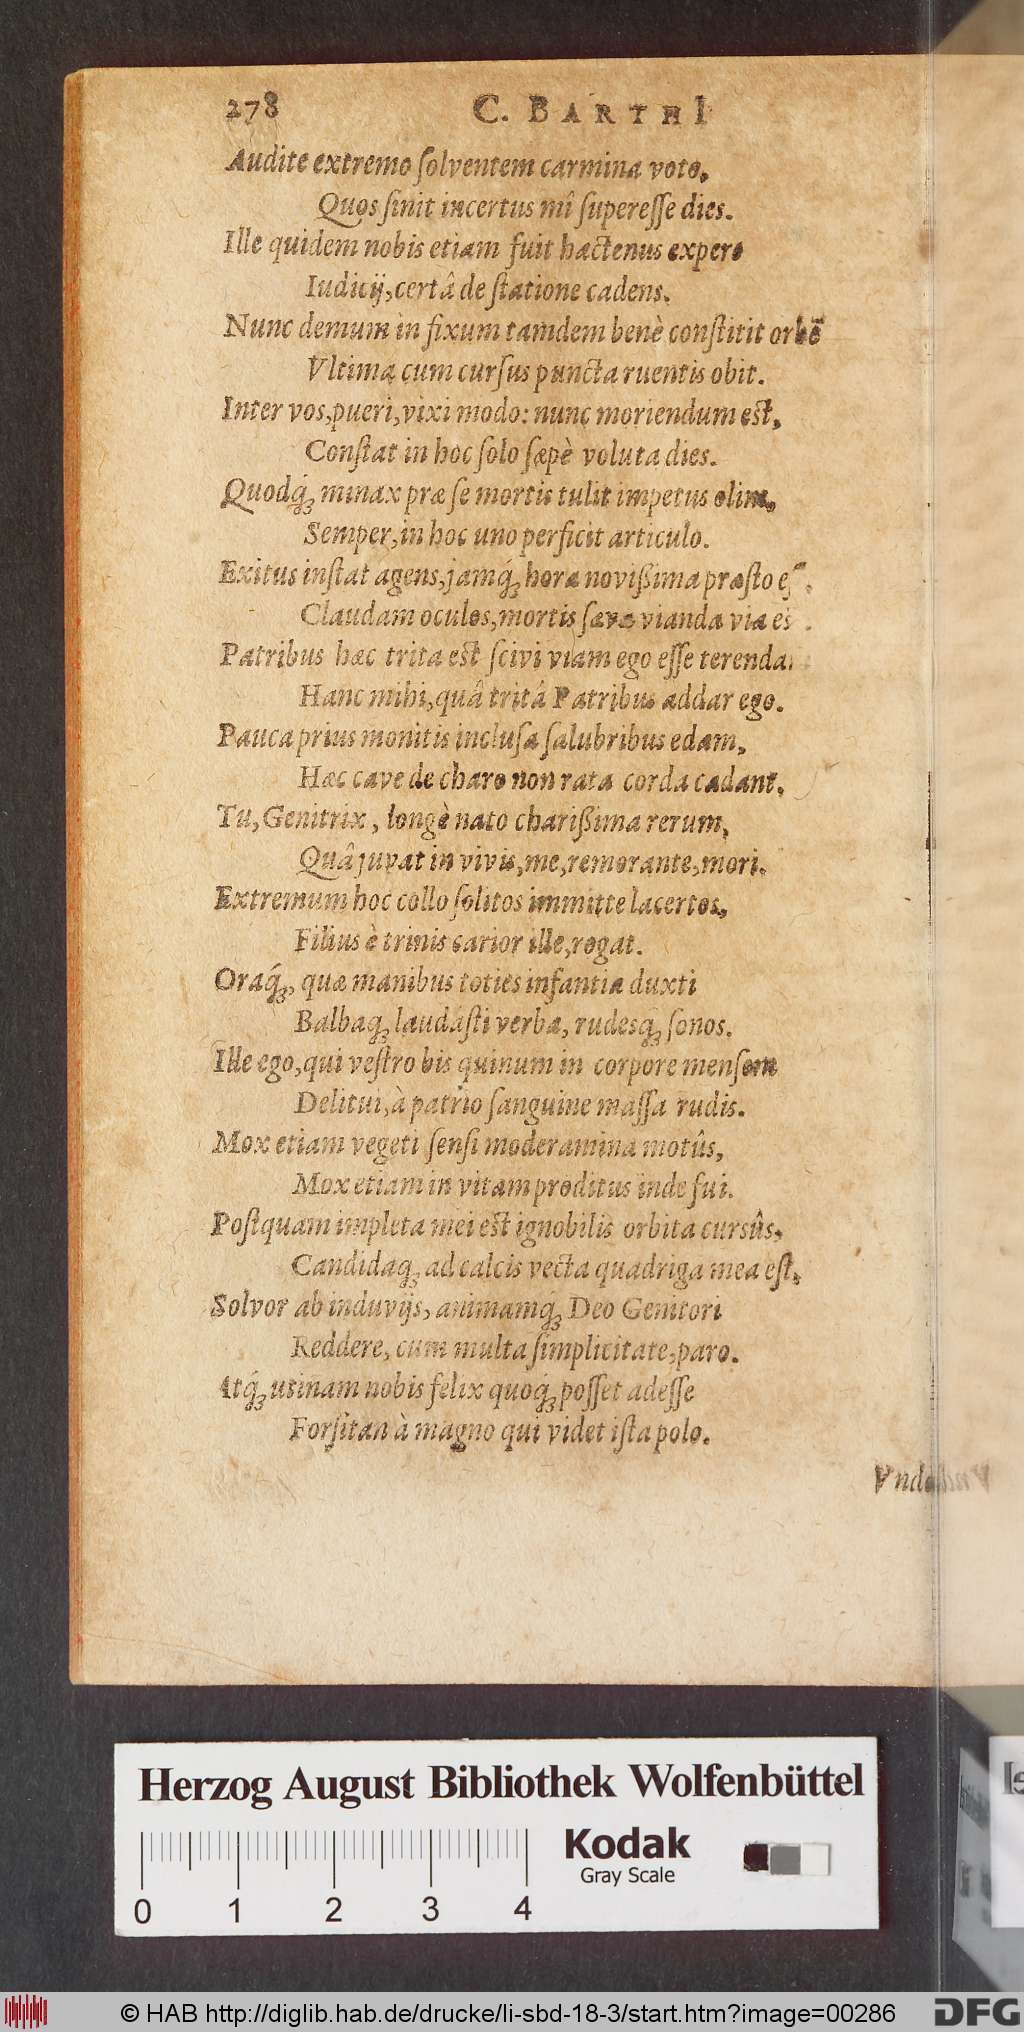 278 C. BARTHI
Audite extremo ſolventem carmina voto,
Quos ſinit incertus mî ſupereſſe dies.
Ille quidem nobis etiam fuit hactenus expers
Iudicij, certâ de ſtatione cadens.
Nunc demum in fixum tamdem benè conſtitit orbē
Vltima cum curſus puncta ruentis obit.
Inter vos, pueri, vixi modo: nunc moriendum eſt,
Conſtat in hoc ſolo ſæpè voluta dies.
Quodq́; minax præ ſe mortis tulit impetus olim,
Semper, in hoc uno perficit articulo.
Exitus inſtat agens, jamq́; hora noviſſima præſto
Claudam oculos, mortis ſæva vianda via
Patribus hæc trita eſt ſcivi viam ego eſſe
Hanc mihi, quâ tritâ Patribus addar ego.
Pauca prius monitis incluſa ſalubribus edam,
Hæc cave de charo non rata corda cadant.
Tu, Genitrix, longè nato chariſſima rerum,
Quâ juvat in vivis, me, remorante, mori.
Extremum hoc collo ſolitos immitte lacertos,
Filius è trinis carior ille, rogat.
Oraq́; quæ manibus toties infantia duxti
Balbaq; laudáſti verba, rudesq; ſonos.
Ille ego, qui veſtro bis quinum in corpore menſem
Delitui, à patrio ſanguine maſſa rudis.
Mox etiam vegeti ſenſi moderamina motûs,
Mox etiam in vitam proditus inde fui.
Poſtquam impleta mei eſt ignobilis orbita cursûs,
Candidaq; ad calcis vecta quadriga mea eſt,
Solvor ab induvijs, animamq́; Deo Genitori
Reddere, cum multa ſimplicitate, paro.
Atq́; utinam nobis felix quoq́; poſſet adeſſe
Forſitan à magno qui videt iſta polo.
Herzog August Bibliothek Wolfenbüttel
Kodak
Gray Scale
0 1 2 3 4
© HAB http://diglib.hab.de/drucke/li-sbd-18-3/start.htm?image=00286 DFG